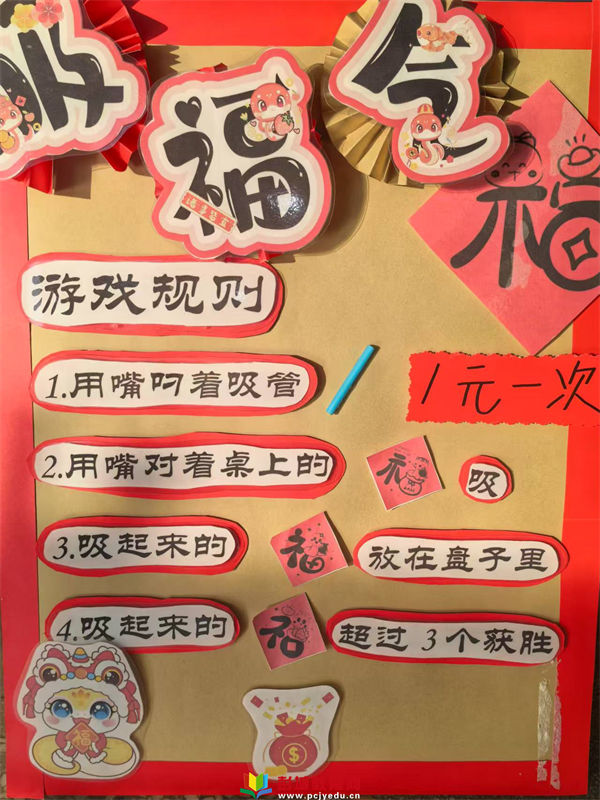 吸福气
福
游戏规则
1元一次
1.用嘴叼着吸管
2.用嘴对着桌上的福吸
3.吸起来的福放在盘子里
4.吸起来的福超过3个获胜
福
$
www.pcjyedu.cn